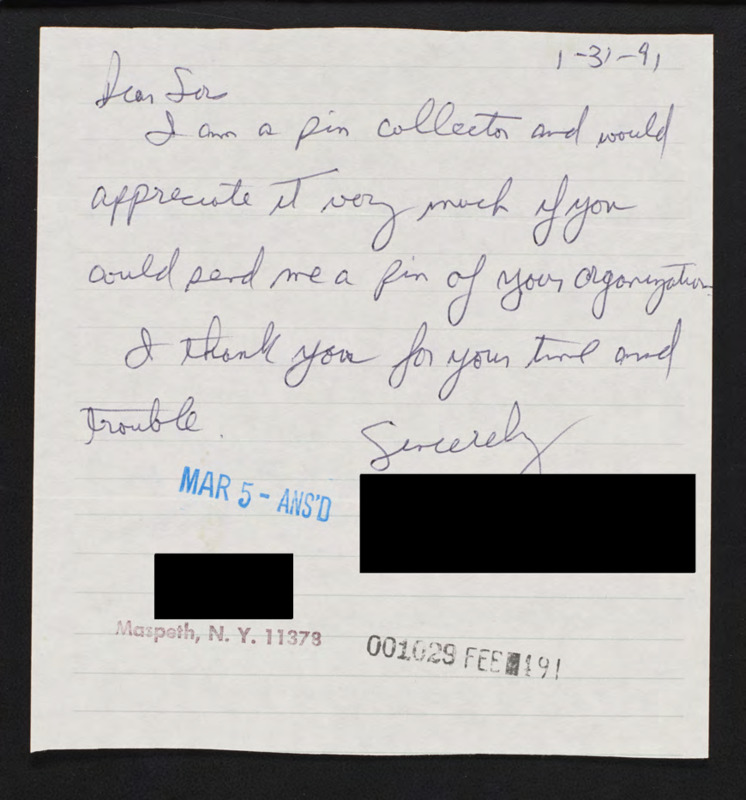 1-31-91
Dear Sir
I am a pin collector and would
appreciate it very much if you
could send me a pin of your organization
I thank you for your time and
trouble.
Sincerely
MAR 5 - ANS'D
Maspeth, N. Y. 11378
001029 FEB 91